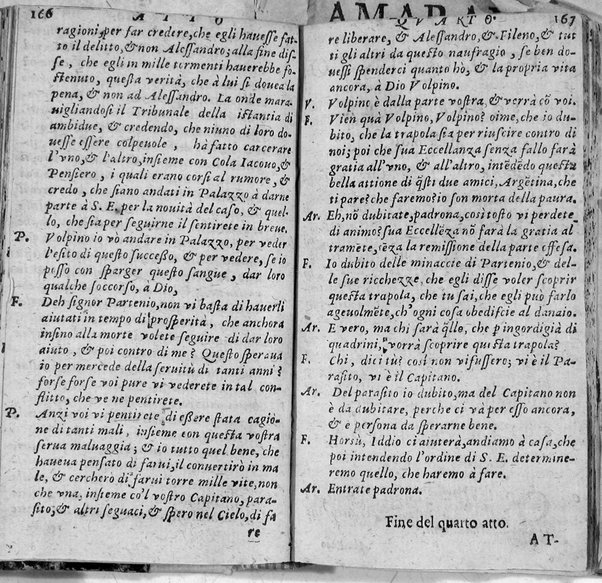 166 ATTO
ragioni, per far credere, che egli hauesse fat-
to il delitto, & non Alessandro; alla fine dis-
se, che egli in mille tormenti hauerebbe so-
stenuto, questa verità, che à lui si douea la
pena, & non ad Alessandro. La onde mara-
uigliandosi il Tribunale della istantia di
ambidue, & credendo, che niuno di loro do-
uesse essere colpeuole, hà fatto carcerare
l'vno, & l'altro, insieme con Cola Iacouo, &
Pensiero, i quali erano corsi al rumore, &
credo, che siano andati in Palazzo à darne
parte à S. E. per la nouità del caso, & quel-
lo, che sia per seguirne il sentirete in breue.
P. Volpino io vò andare in Palazzo, per veder
l'esito di questo successo, & per vedere, se io
posso con sparger questo sangue, dar loro
qualche soccorso, à Dio,
F. Deh signor Partenio, non vi basta di hauerli
aiutati in tempo di prosperità, che anchora
insino alla morte volete seguire di dar loro
aiuto, & poi contro di me? Questo speraua
io per mercede della seruitù di tanti anni?
forse forse voi pure vi vederete in tal con-
flitto, che ve ne pentirete.
P. Anzi voi vi pentirete di essere stata cagio-
ne di tanti mali, insieme con questa vostra
serua maluaggia; & io tutto quel bene, che
haueua pensato di farui, il conuertirò in ma
le, & cercherò di farui torre mille vite, non
che vna, insieme co'l vostro Capitano, para-
sito, & altri seguaci, & spero nel Cielo, di fa
re
AMARAN
QVARTO. 167
re liberare, & Alessandro, & Fileno, & tut
ti gli altri da questo naufragio, se ben do-
uessi spenderci quanto hò, & la propria vita
ancora, à Dio Volpino.
V. Volpino è dalla parte vostra, & verrà cō voi.
F. Vien quà Volpino, Volpino? oime, che io du-
bito, che la trapola sia per riuscire contro di
noi; poi che sua Eccellanza senza fallo farà
gratia all'vno, & all'altro, intēdēdo questa
bella attione di q̄sti due amici, Argētina, che
ti pare? che faremo? io son morta della paura.
Ar. Eh, nō dubitate, padrona, così tosto vi perdete
di animo? sua Eccellēza nō farà la gratia al
tramēte, sēza la remissione della parte offesa.
F. Io dubito delle minaccie di Partenio, & del-
le sue ricchezze, che egli disse voler scoprir
questa trapola, che tu sai, che egli può farlo
ageuolmēte, ch'ogni cosa obedisce al danaio.
Ar. E vero, ma chi sarà q̄llo, che p ingordigia di
quadrini, vorrà scoprire q̄sta trapola?
F. Chi, dici tù? così non vi fussero; vi è il Pa-
rasito, vi è il Capitano.
Ar. Del parasito io dubito, ma del Capitano non
è da dubitare, perche ci và per esso ancora,
& è persona da sperarne bene.
F. Horsù, Iddio ci aiuterà, andiamo à casa, che
poi intendendo l'ordine di S. E. determine-
remo quello, che haremo à fare.
Ar. Entrate padrona.
Fine del quarto atto.
AT-